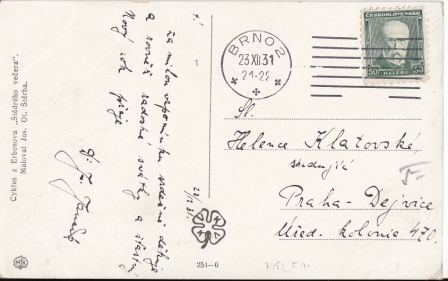 Cyklus z Erbenova „Štědrého večera".
Maloval Jos. Ot. Štěrba.
Za milou vzpomínku srdečně děkuje
a rovněž radostné svátky a šťastný
Nový rok přeje
23/12 31.
251—6
BRNO 2
23.XII.31
21-22
ČESKOSLOVENSKO
50 50
HALÉŘŮ
Sl.
Helence Klatovské,
studující
Praha - Dejvice
Úřed. kolonie 470.